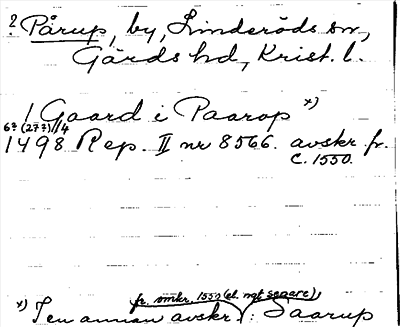 ? Pårup, by, Linderöds sn,
Gärds hd, Krist. l.
1 Gaard i Paarop x)
6? (27?)/4
1498 Rep. II nr 8566. avskr. fr.
c. 1550.
fr. omkr. 1550 (el. ngt senare)
x) I en annan avskr.: Saarup